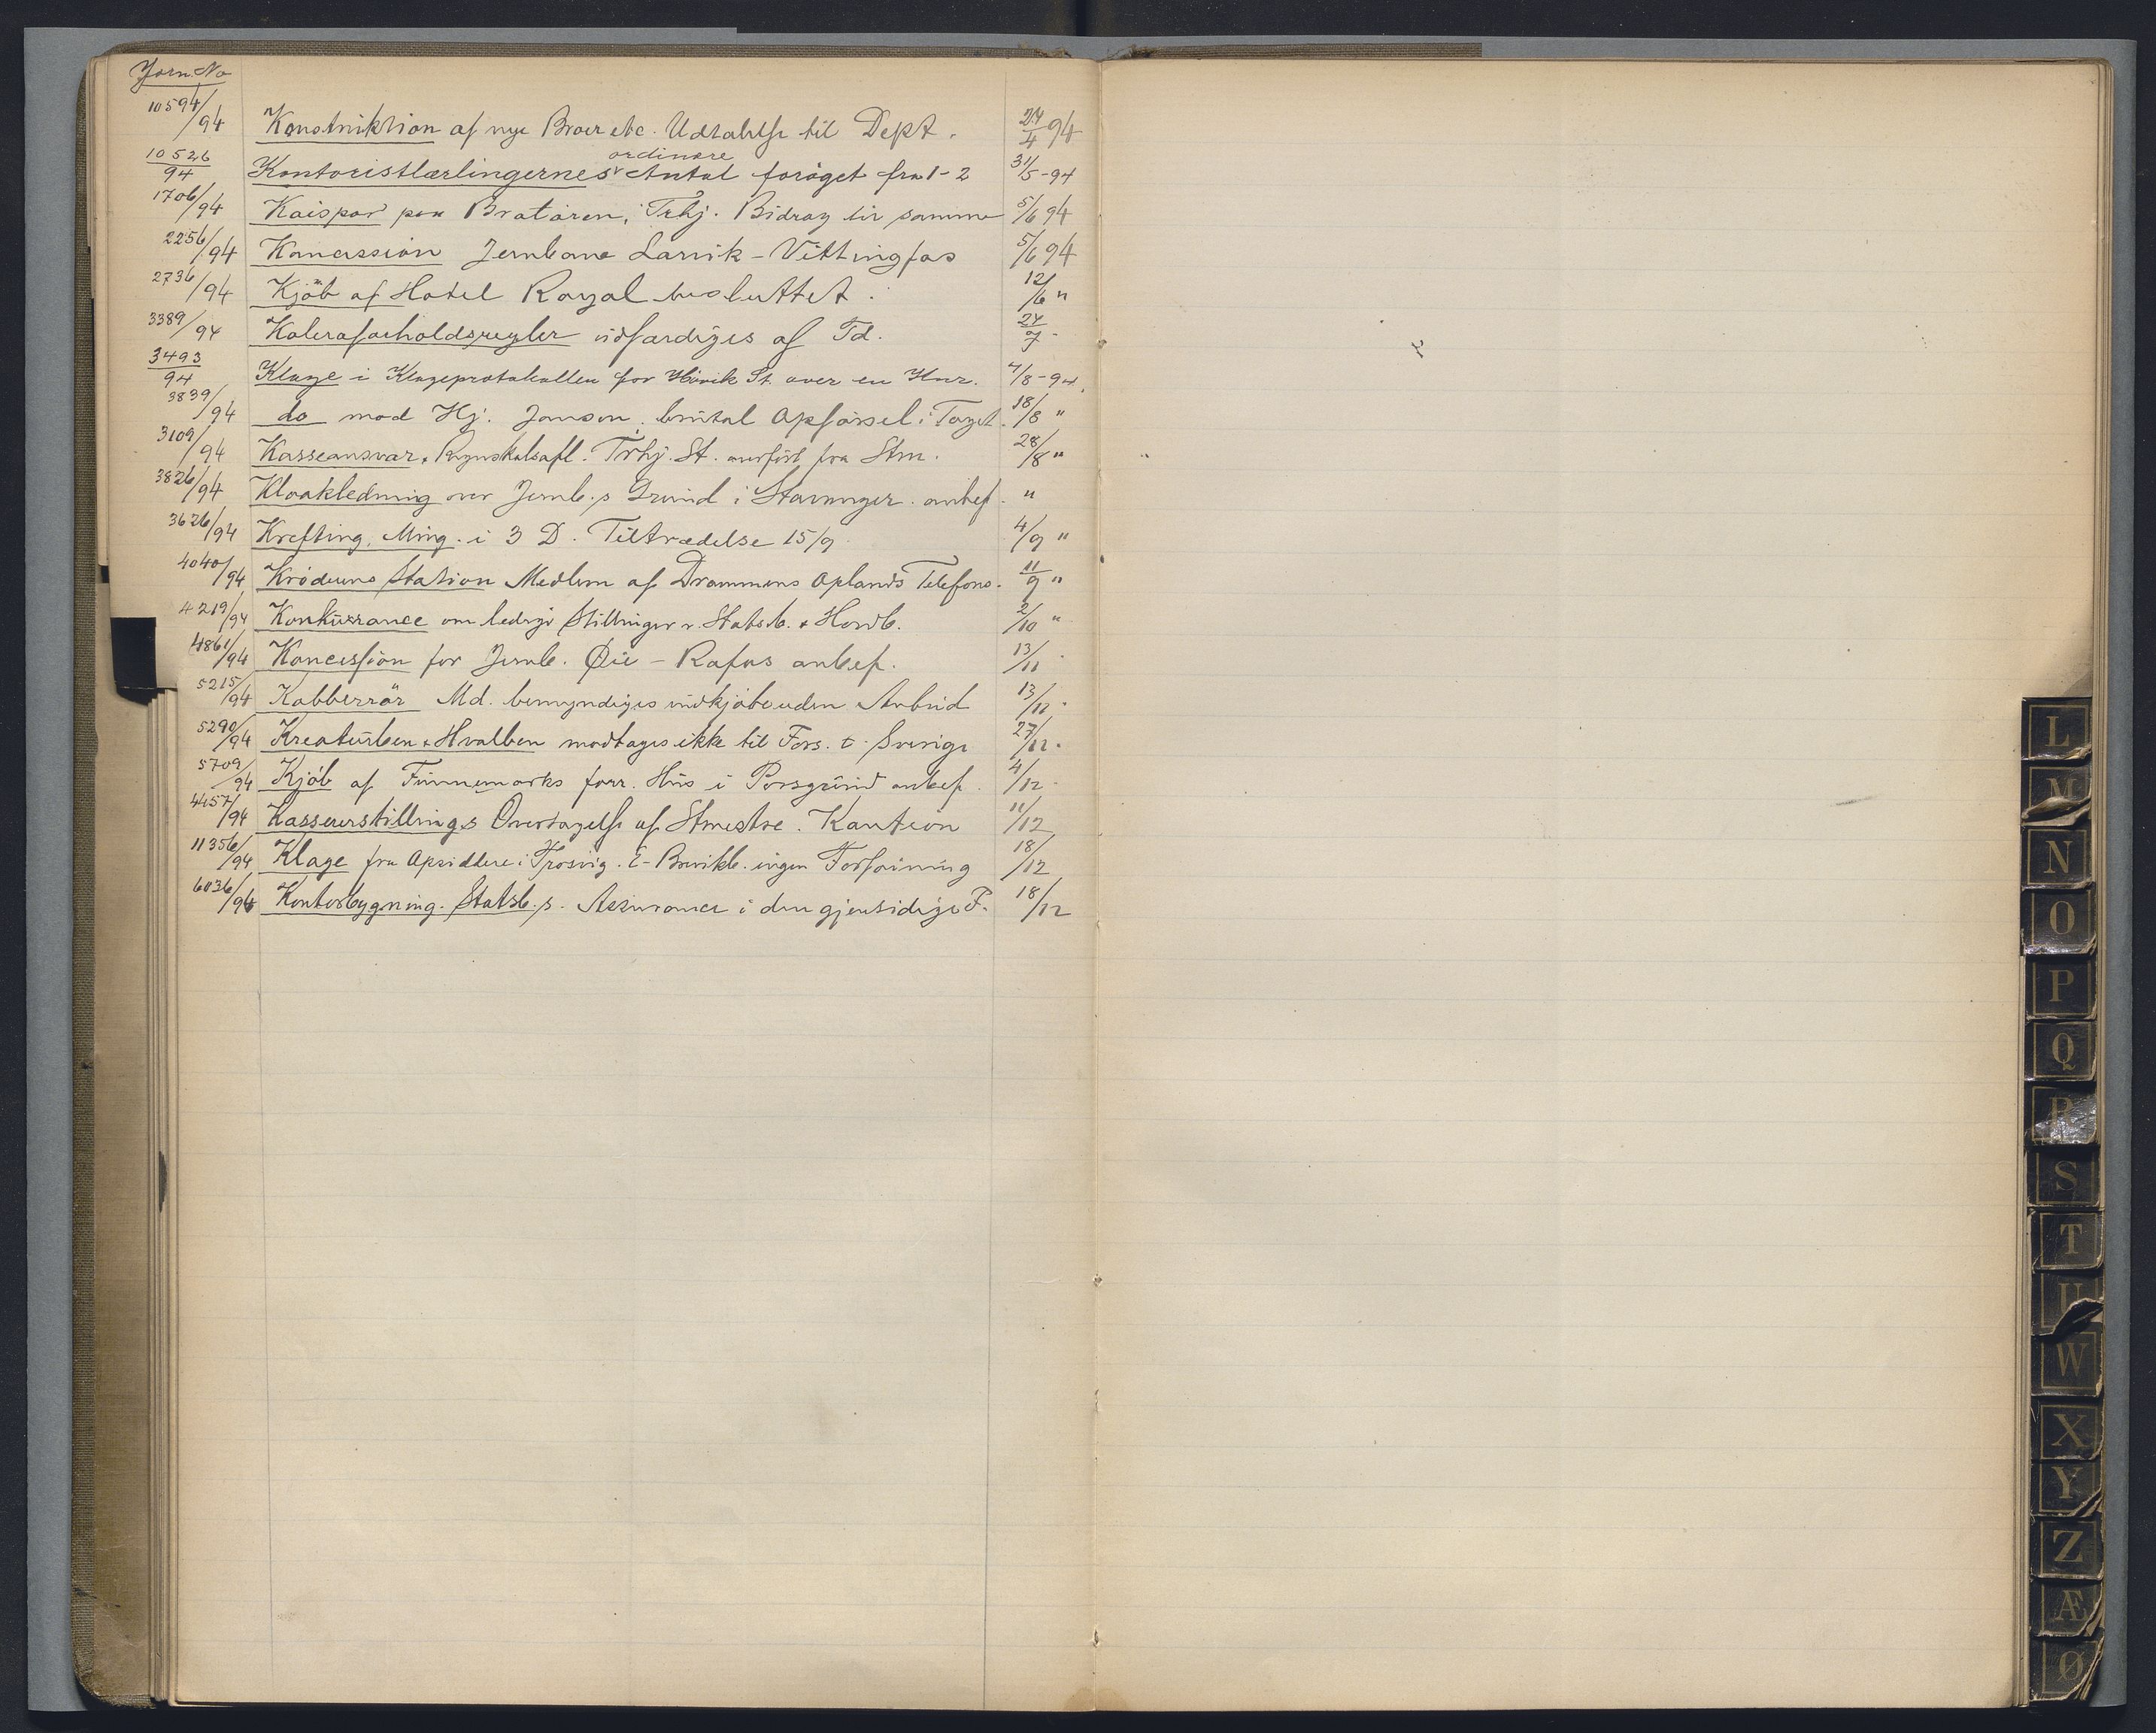 Journ. No
10594/94 Konstruktion af nye Broer etc. Udtalelse til Dept. 24/4 94
ordinære
10526/94 Kontoristlærlingernes Antal forøget fra 1-2 31/5-94
1706/94 Kaispor paa Bratøren, Trhj. Bidrag til samme 5/6 94
2256/94 Koncession Jernbane Larvik - Vittingfos 5/6 94
2736/94 Kjöb af Hotel Royal besluttet. 12/6 "
3389/94 Koleraforholdsregler udfærdiges af Td. 24/7 -
3493/94 Klage i Klageprotokollen for Hövik St. over en Knr. 7/8-94.
3839/94 do mod Hj. Jonson, brutal Opførsel i Toget. 18/8 "
3109/94 Kasseansvar, Regnskabsafl. Trhj. St. overført fra Stm. 28/8 "
3826/94 Kloakledning over Jernb.s Grund i Stavanger. anbef. "
3626/94 Krefting, Ming. i 3 D. Tiltrædelse 15/9 4/9 "
4040/94 Krøderens Station Medlem af Drammens Oplands Telefons. 11/9 "
4219/94 Konkurrance om ledige Stillinger v. Statsb. & Hovedb. 2/10 "
4861/94 Koncession for Jernb. Øie - Rafos anbef. 13/11
5215/94 Kobberrör Md. bemyndiges indkjøbe uden Anbud 13/11
5290/94 Kreaturben & Hvalben modtages ikke til Fors. t. Sverige 27/11.
5709/94 Kjöb af Finnemarks forr. Hus i Porsgrund anbef. 4/12
4457/94 Kassererstillings Overtagelse af Stmestre. Kaution 11/12
11356/94 Klage fra Opsiddere i Trosvig. E-Brevikb. ingen Forføining 18/12
6036/94 Kontorbygning. Statsb.s. Assurance i den gjensidige F. 18/12
L
M
N
O
P
Q
R
S
T
U
W
X
Y
Z
Æ
Ø